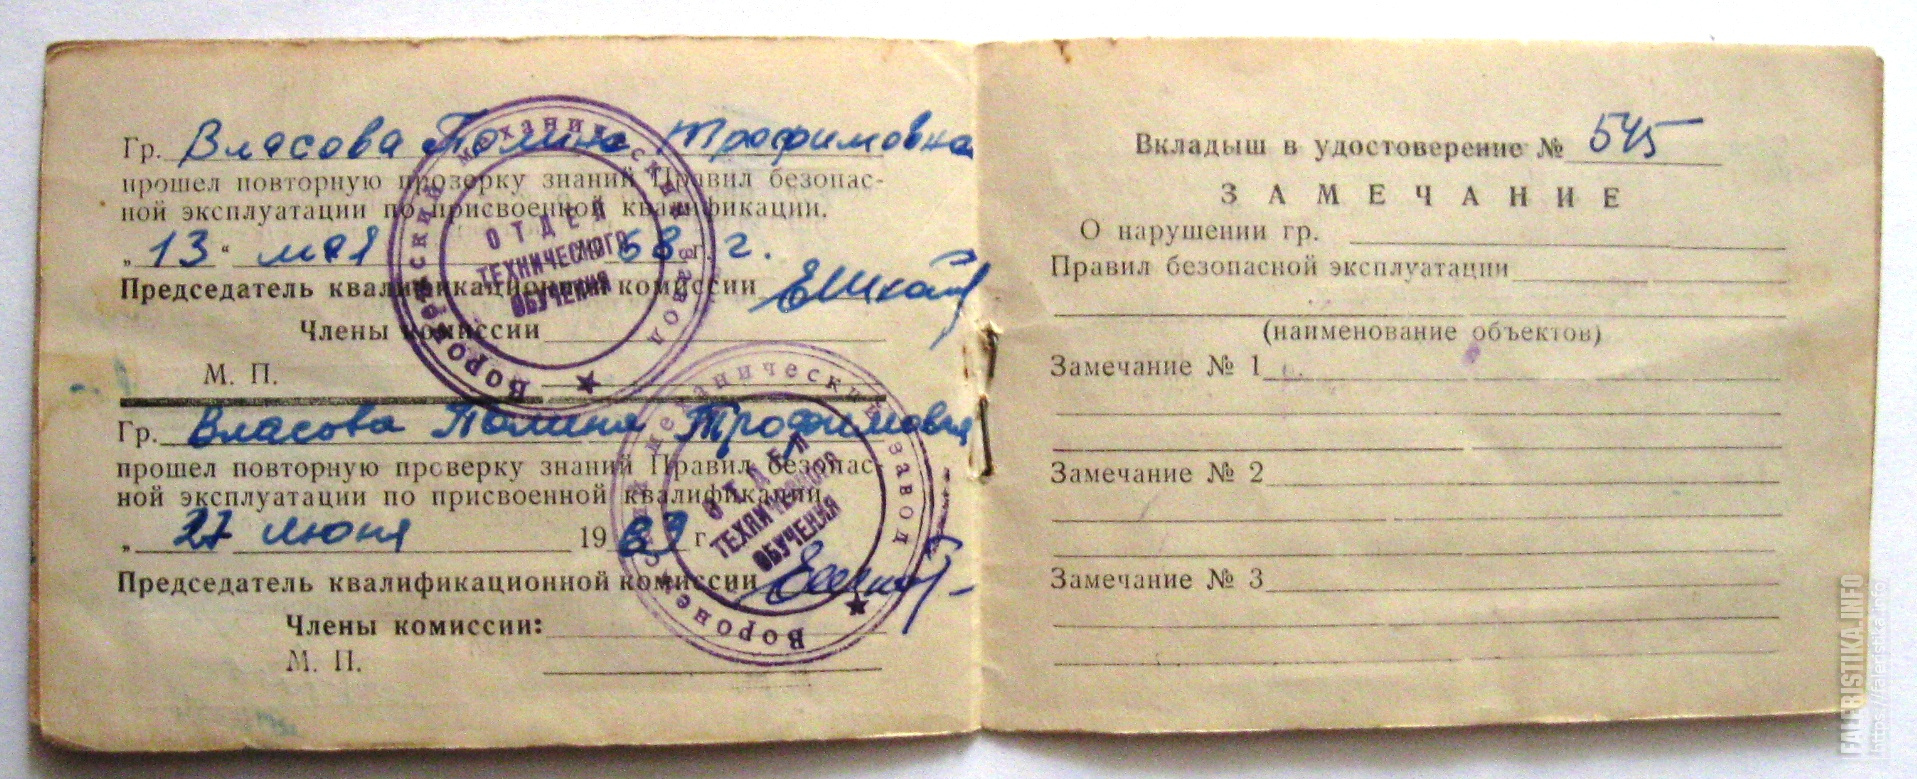 Гр. Власова Полина Трофимовна
прошел повторную проверку знаний Правил безопас-
ной эксплуатации по присвоенной квалификации.
„13“ мая 68 г.
Председатель квалификационной комиссии
Члены комиссии
М. П.
Воронежский механический завод
ОТДЕЛ
ТЕХНИЧЕСКОГО
ОБУЧЕНИЯ
Гр. Власова Полина Трофимовна
прошел повторную проверку знаний Правил безопас-
ной эксплуатации по присвоенной квалификации
„27 июня 1969 г.
Председатель квалификационной комиссии
Члены комиссии:
М. П.
Воронежский механический завод
ОТДЕЛ
ТЕХНИЧЕСКОГО
ОБУЧЕНИЯ
Вкладыш в удостоверение № 545
ЗАМЕЧАНИЕ
О нарушении гр.
Правил безопасной эксплуатации
(наименование объектов)
Замечание № 1
Замечание № 2
Замечание № 3
FALERISTIKA.INFO
https://faleristika.info